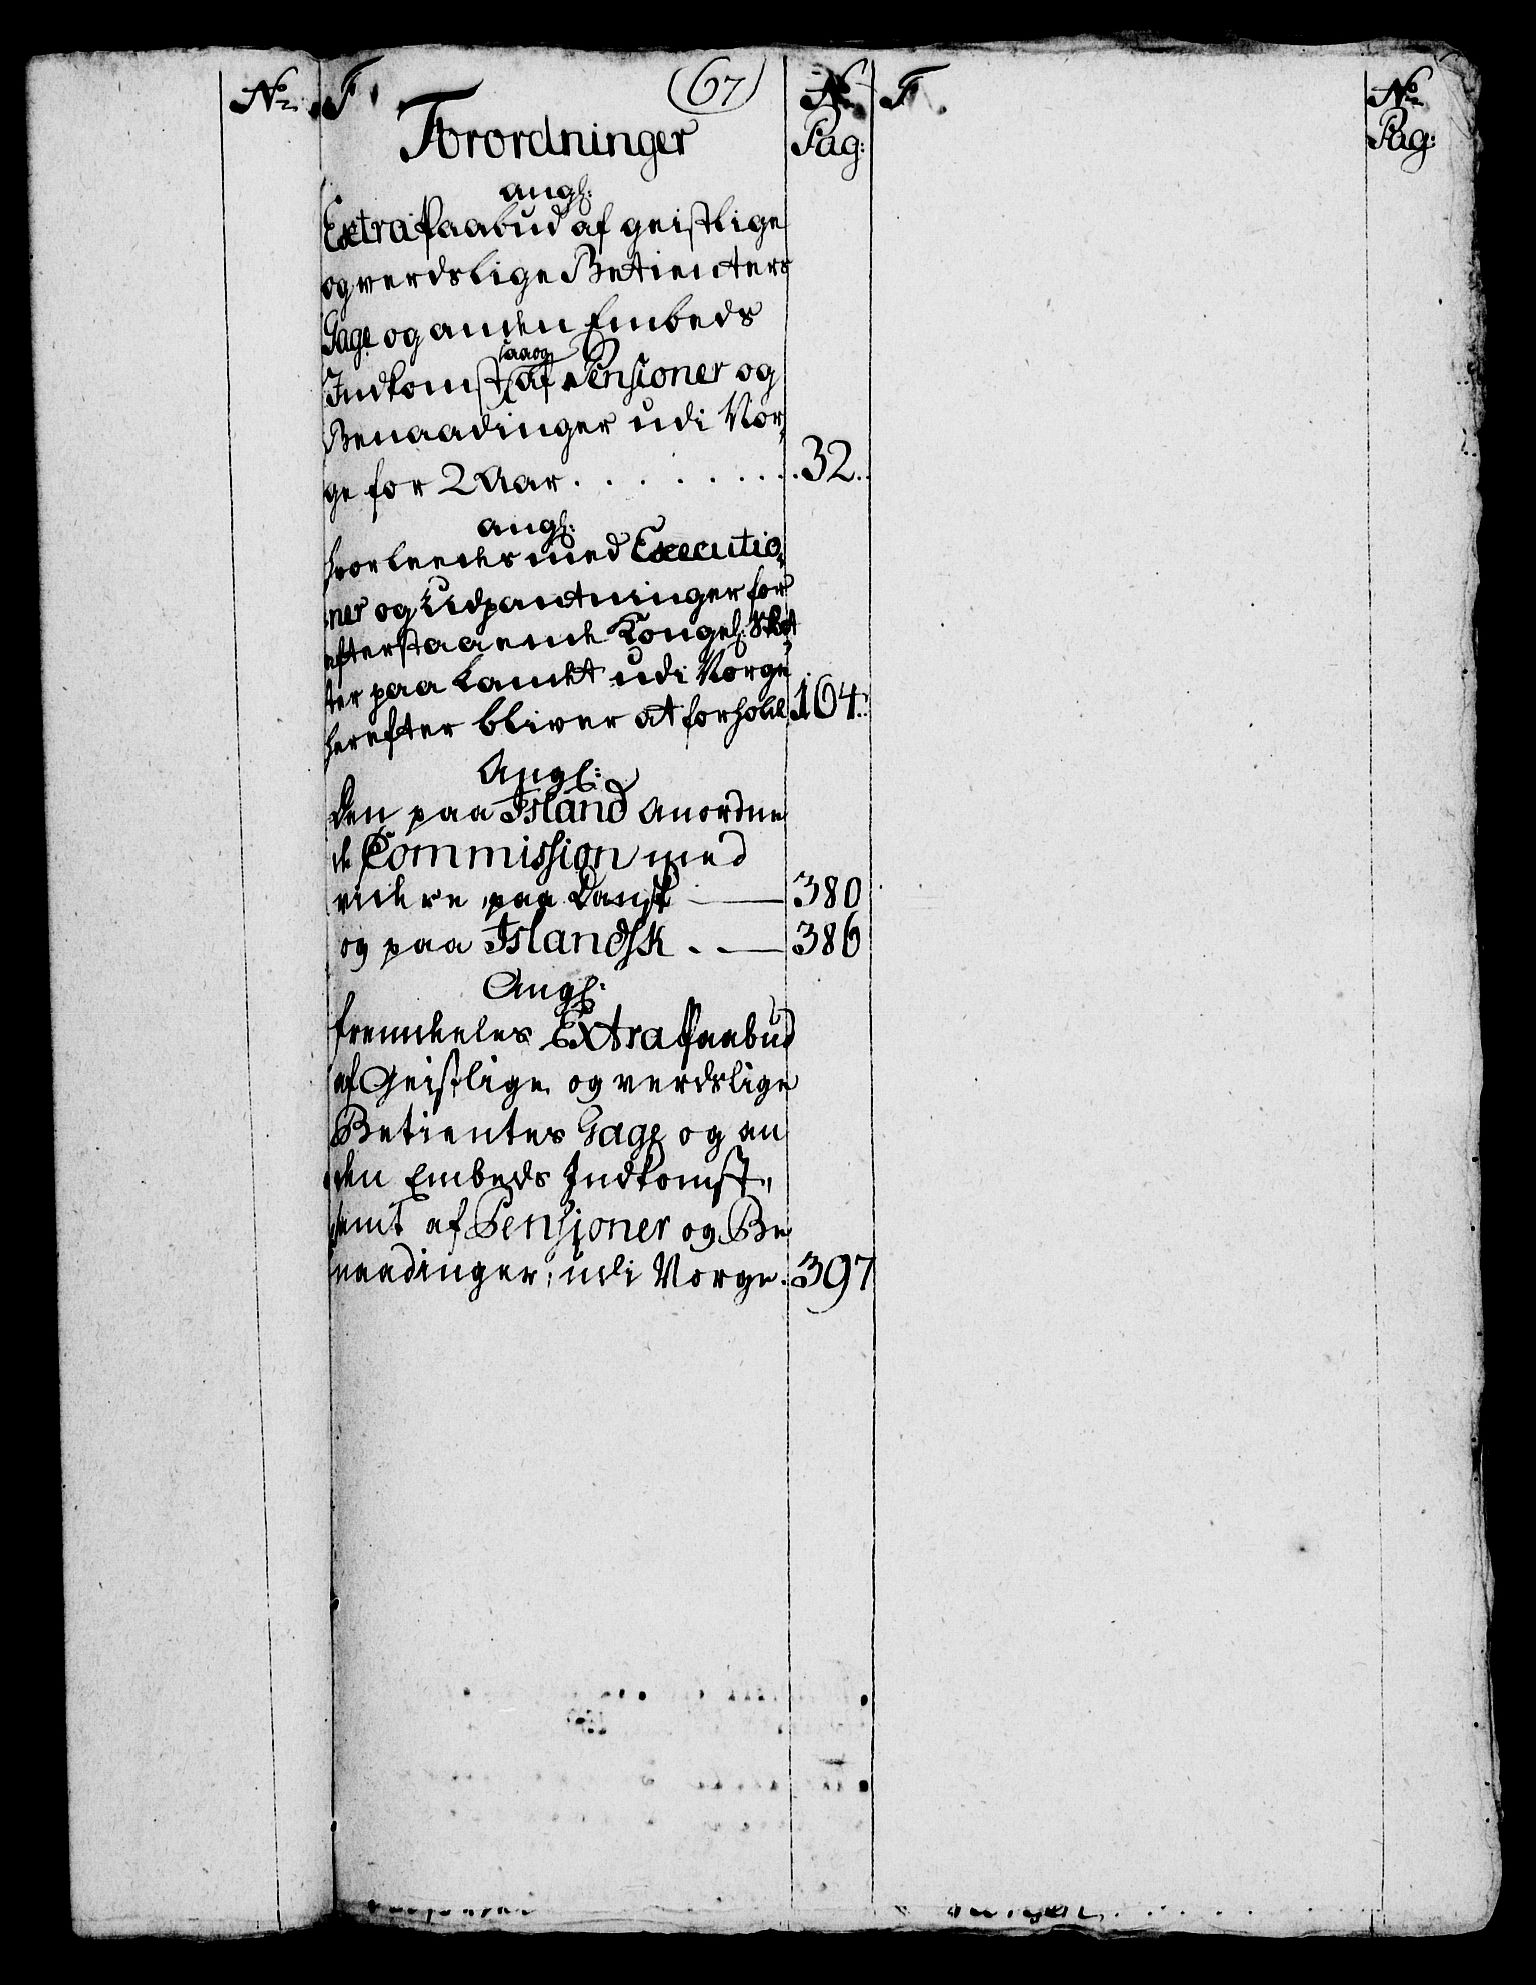 No
F
(67)
No
F
No
Forordninger
Pag:
Pag:
angl:
Extra Paabud af geistlige
og verdslige Betienters
Gage og anden Embeds
Indkomst, saa og af Pensioner og
Benaadinger udi Nor-
ge for 2 Aar . . . . . . . . . 32.
angl:
hvorledes med Executio-
ner og Udpantninger for
efterstaaende Kongel: Skat
ter paa Landet udi Norge
herefter bliver at forhold. 164.
Angl:
Den paa Island anordne
de Commission med
videre, paa Dansk — 380
og paa Islandsk . — 386
Angl:
fremdeles Extra Paabud
af Geistlige og verdslige
Betientes Gage og an
den Embeds Indkomst,
samt af Pensioner og Be
naadinger, udi Norge. 397